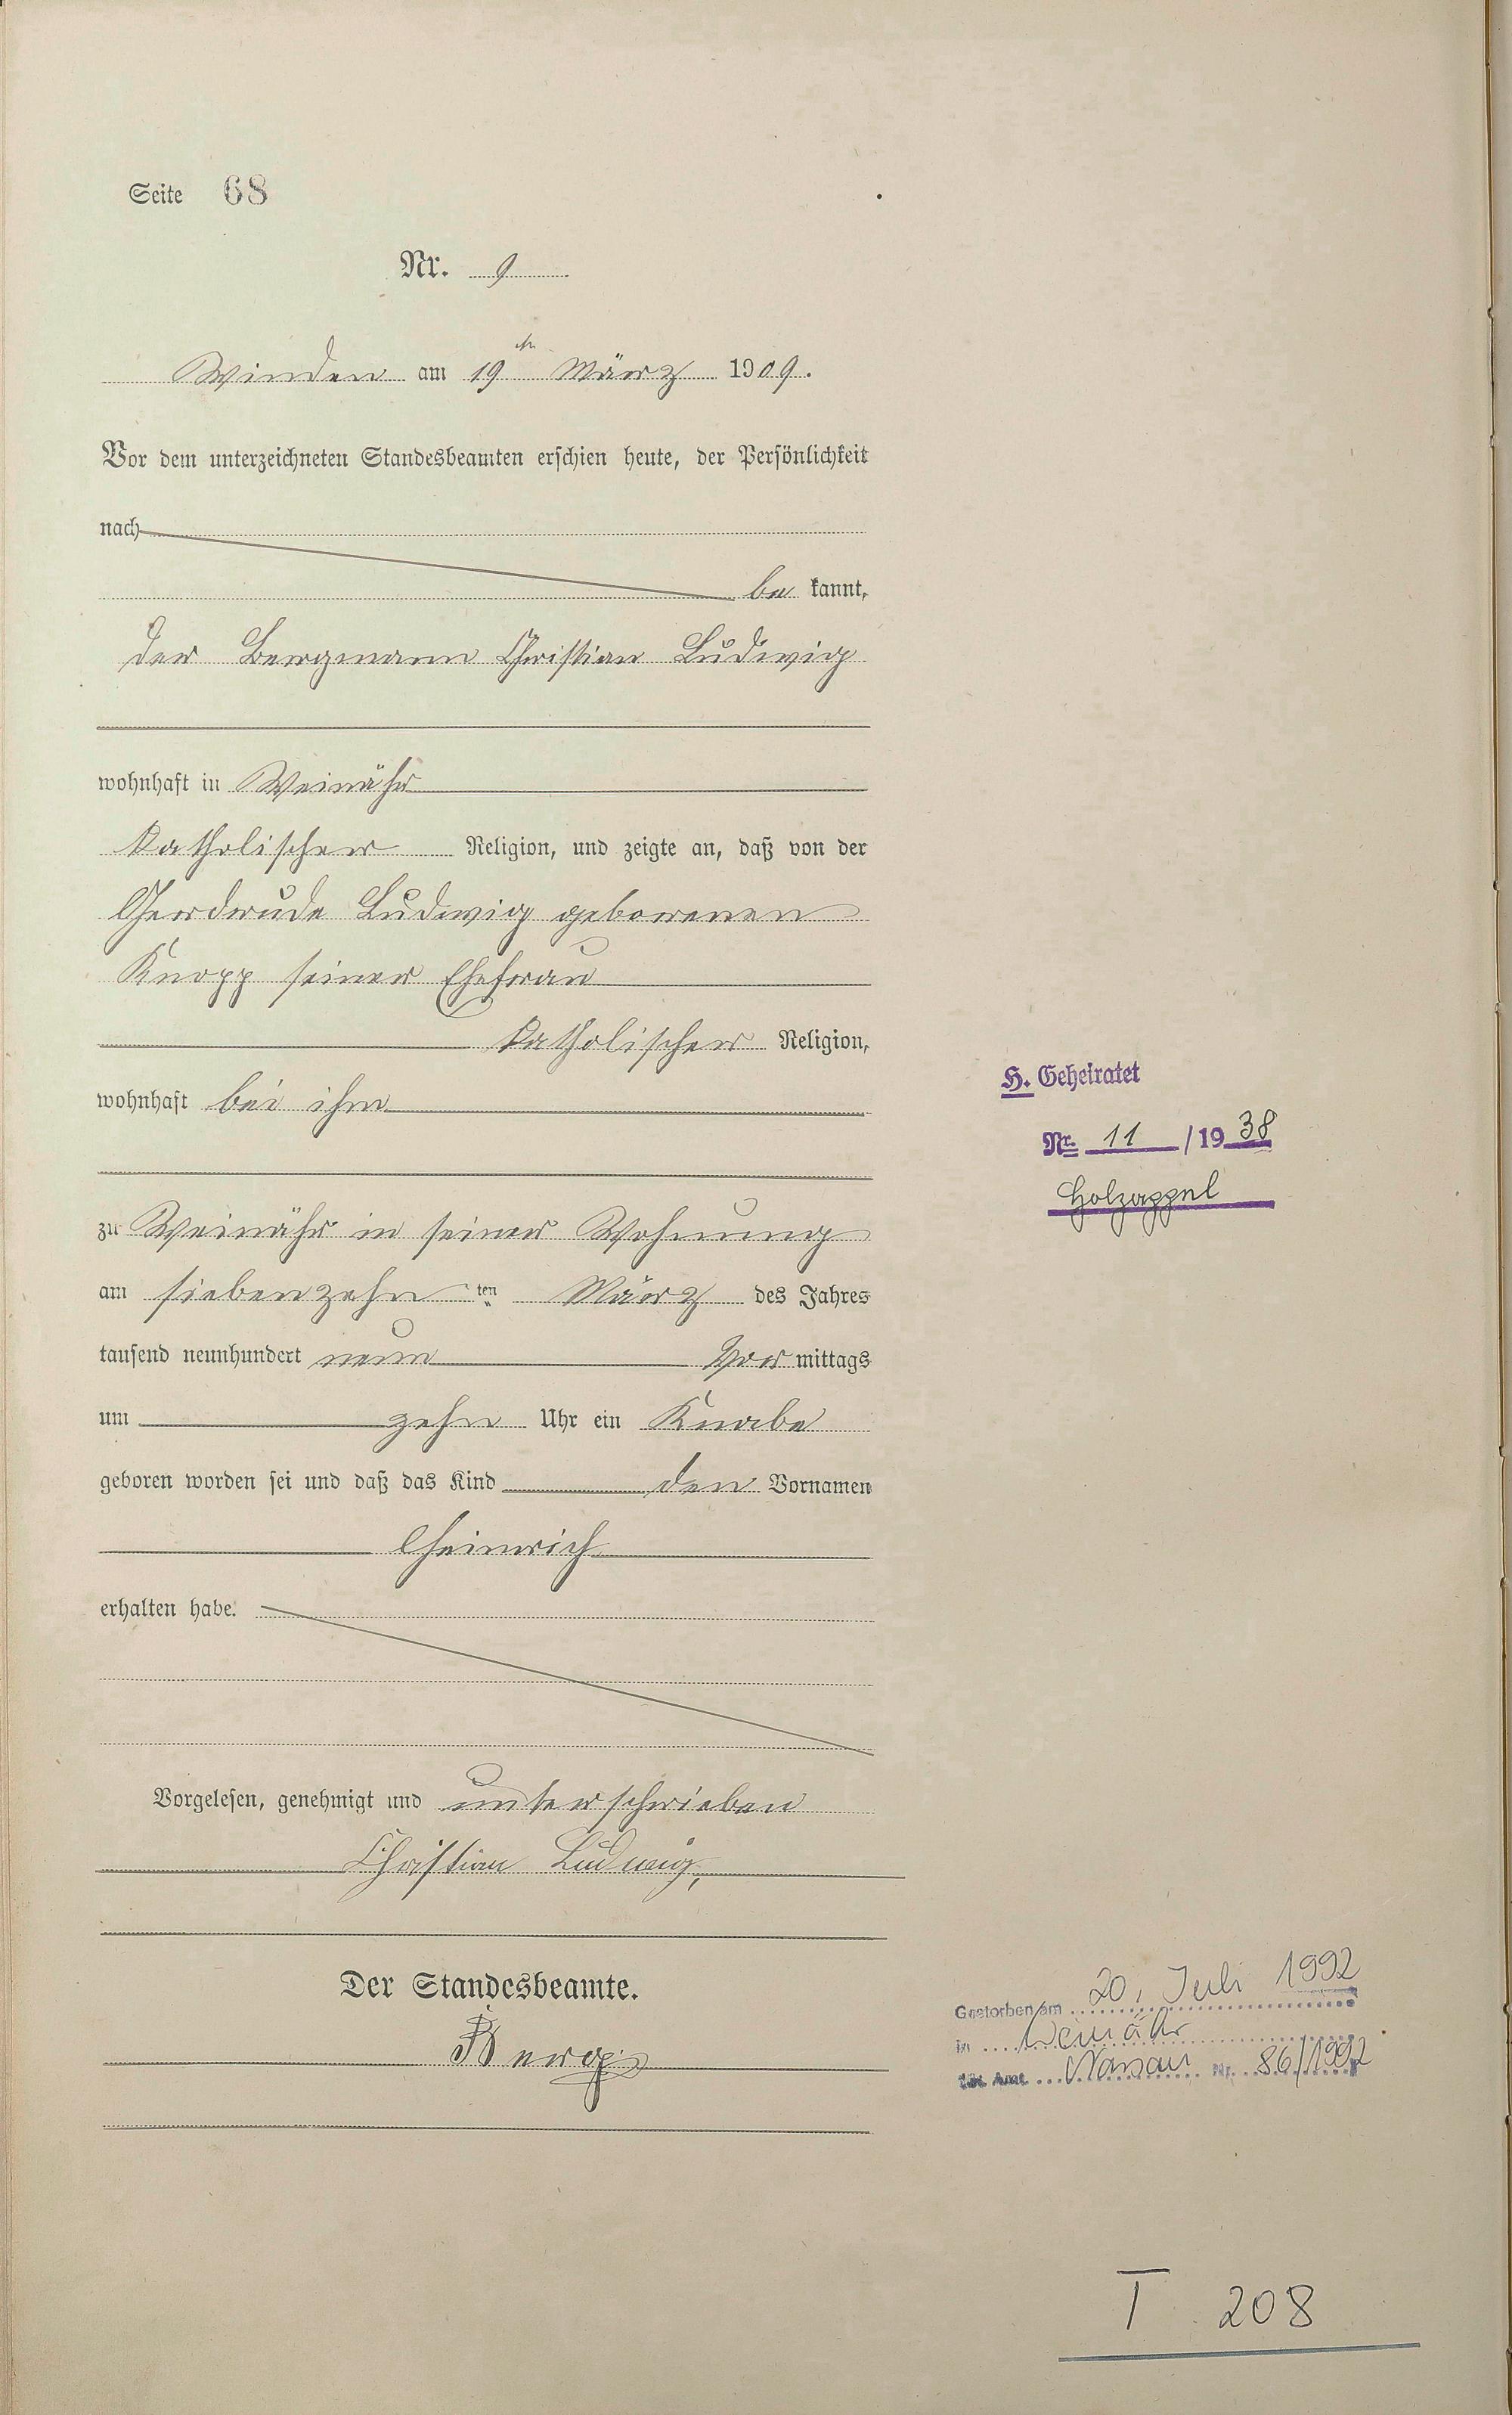 Seite 68
Nr. 9
Winden am 19ten März 1909.
Vor dem unterzeichneten Standesbeamten erschien heute, der Persönlichkeit
nach
be kannt,
der Bergmann Christian Ludwig
wohnhaft in Weinähr
katholischer Religion, und zeigte an, daß von der
Gerdrude Ludwig geborenen
Knopp seiner Ehefrau
katholischer Religion,
wohnhaft bei ihm
zu Weinähr in seiner Wohnung
am siebenzehn ten März des Jahres
tausend neunhundert neun Vor mittags
um zehn Uhr ein Knabe
geboren worden sei und daß das Kind den Vornamen
Heinrich
erhalten habe.
Vorgelesen, genehmigt und unterschrieben
Christian Ludwig,
Der Standesbeamte.
Berg
H. Geheiratet
Nr. 11 /19 38
Holzappel
Gestorben am 20. Juli 1992
in Weinähr
Amt Nassau Nr. 86/1992
T 208